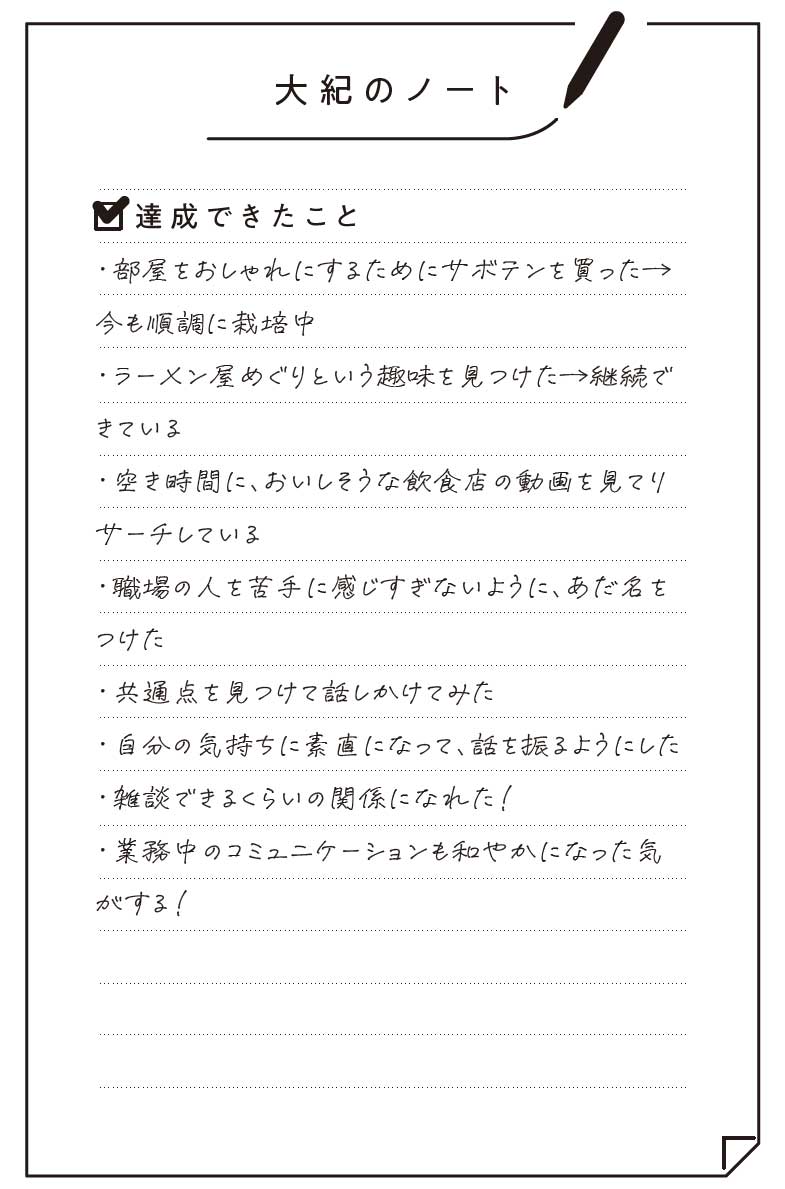 大紀のノート
達成できたこと
・部屋をおしゃれにするためにサボテンを買った→
今も順調に栽培中
・ラーメン屋めぐりという趣味を見つけた→継続で
きている
・空き時間に、おいしそうな飲食店の動画を見てリ
サーチしている
・職場の人を苦手に感じすぎないように、あだ名を
つけた
・共通点を見つけて話しかけてみた
・自分の気持ちに素直になって、話を振るようにした
・雑談できるくらいの関係になれた！
・業務中のコミュニケーションも和やかになった気
がする！